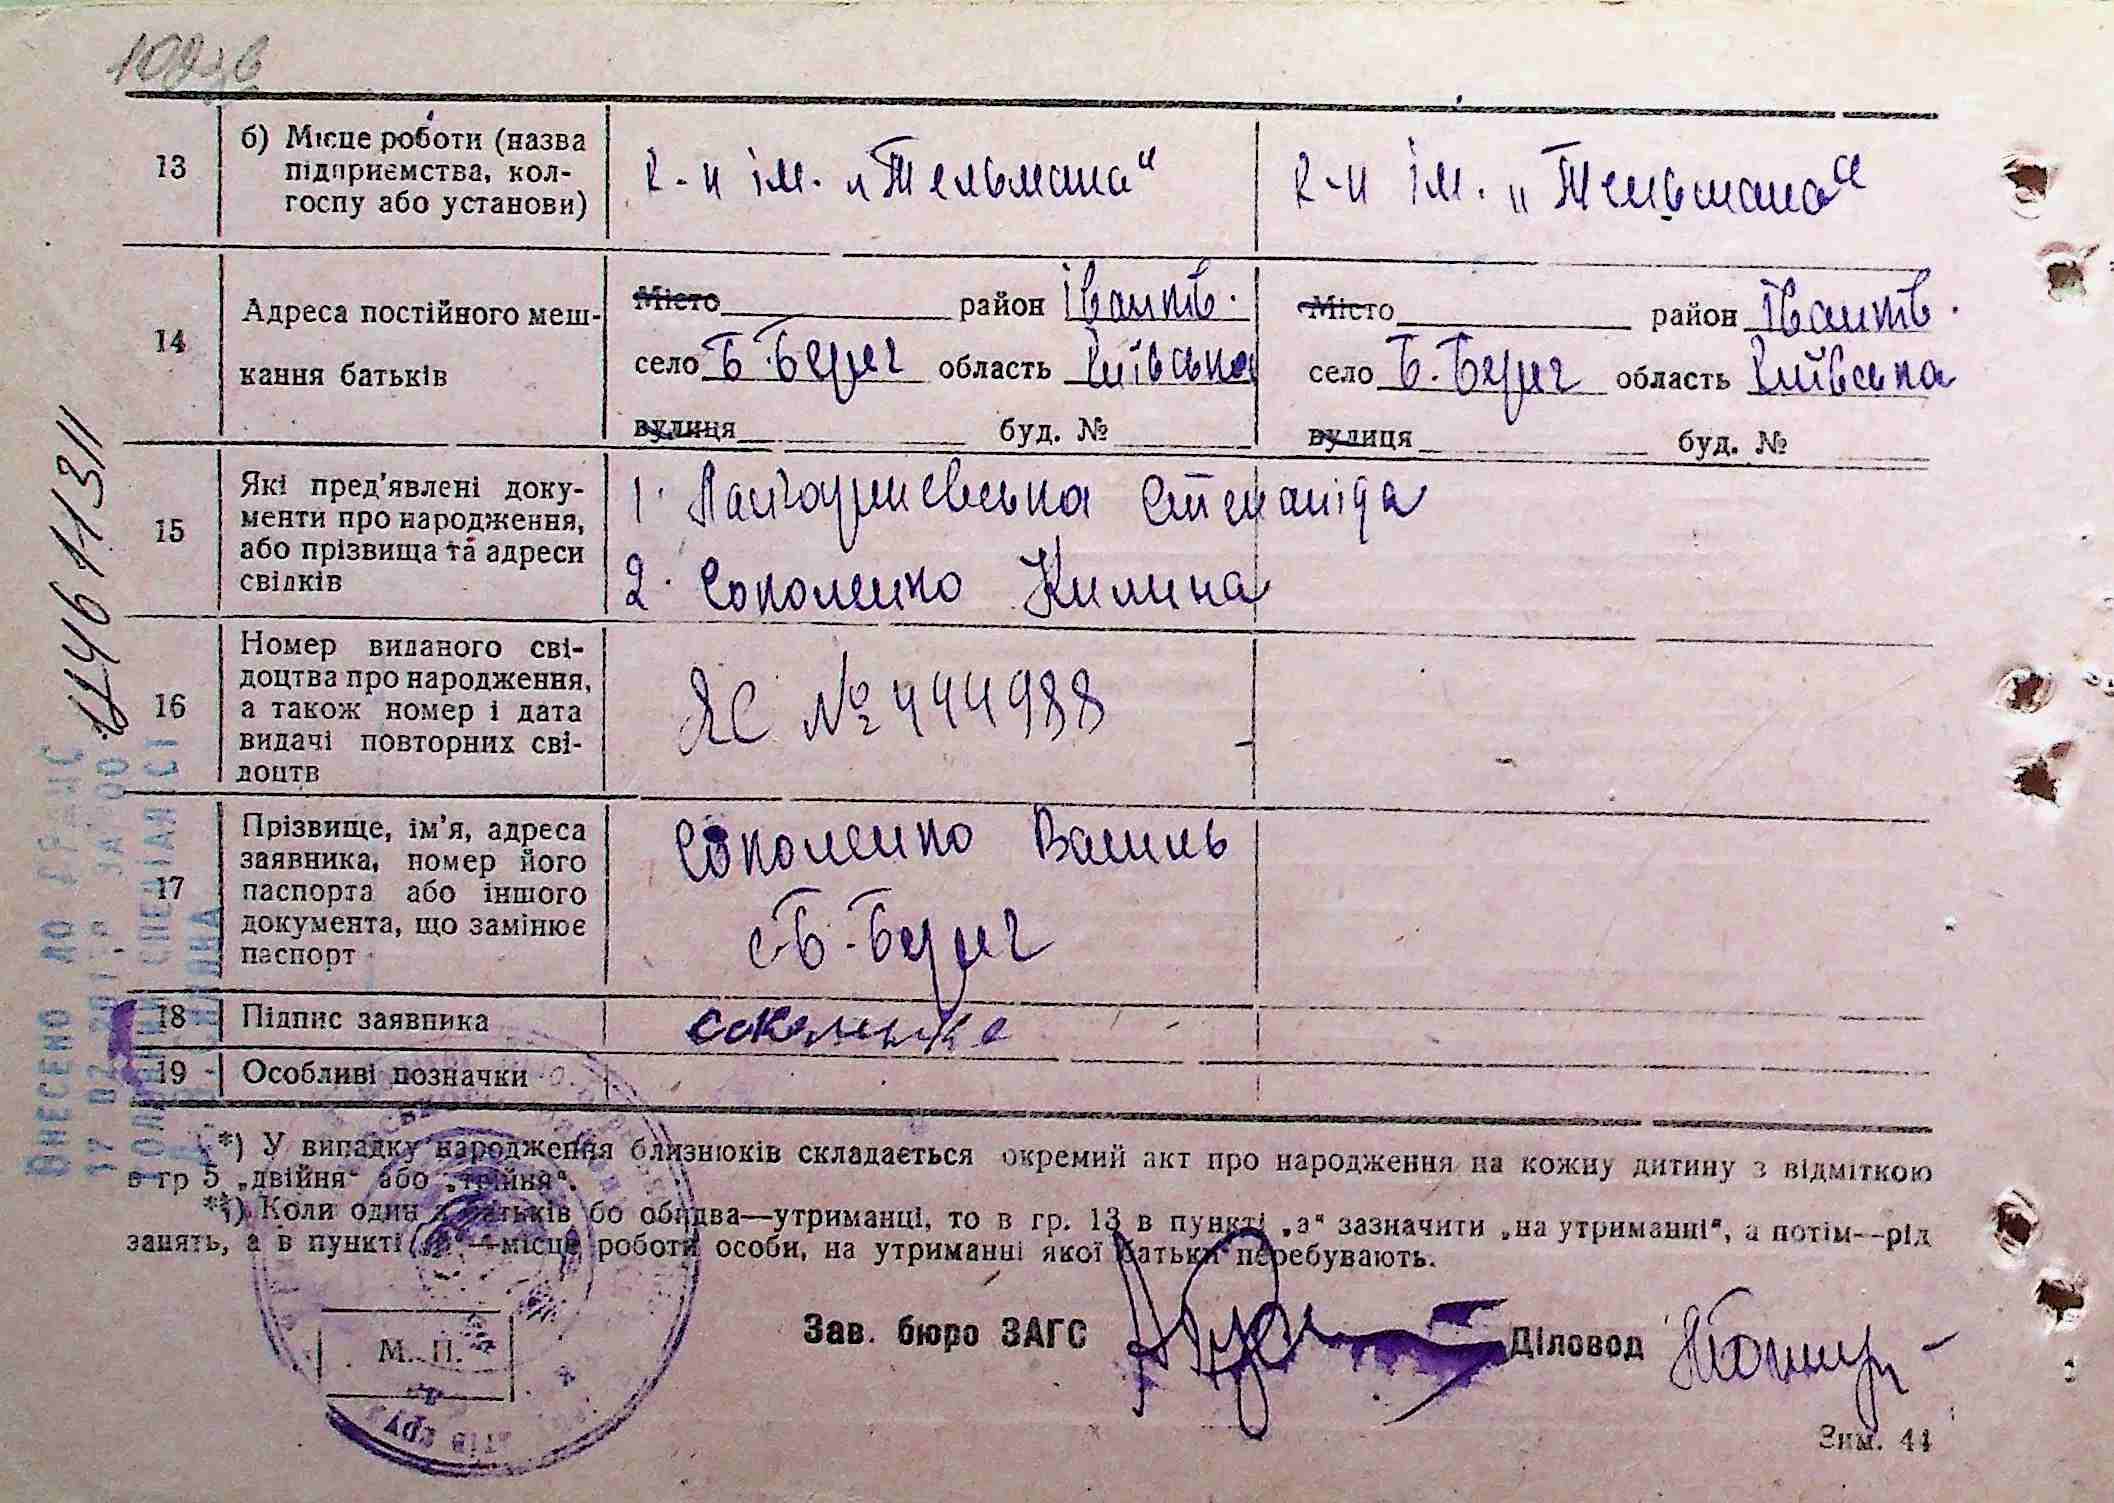 13
б) Місце роботи (назва
підприємства, кол-
госпу або установи)
к-п ім. „Тельмана“
к-п ім. „Тельмана“
14
Адреса постійного меш-
кання батьків
Місто район Іванків.
село Б. Берег область Київська
вулиця буд. №
Місто район Іванків.
село Б. Берег область Київська
вулиця буд. №
15
Які пред'явлені доку-
менти про народження,
або прізвища та адреси
свідків
1. Степаніда
2. Соколенко Килина
16
Номер виданого сві-
доцтва про народження,
а також номер і дата
видачі повторних сві-
доцтв
ЯС № 444988
17
Прізвище, ім'я, адреса
заявника, номер його
паспорта або іншого
документа, що замінює
паспорт
Соколенко Василь
с. Б. Берег
18
Підпис заявника
19
Особливі позначки
*) У випадку народження близнюків складається окремий акт про народження на кожну дитину з відміткою
в гр 5 „двійня“ або „трійня“.
**) Коли один з батьків бо обидва—утриманці, то в гр. 13 в пункті „а“ зазначити „на утриманні“, а потім--рід
занять, а в пункті —місце роботи особи, на утриманні якої батьки перебувають.
М. П.
Зав. бюро ЗАГС
Діловод
Зим. 44
ВНЕСЕНО ДО